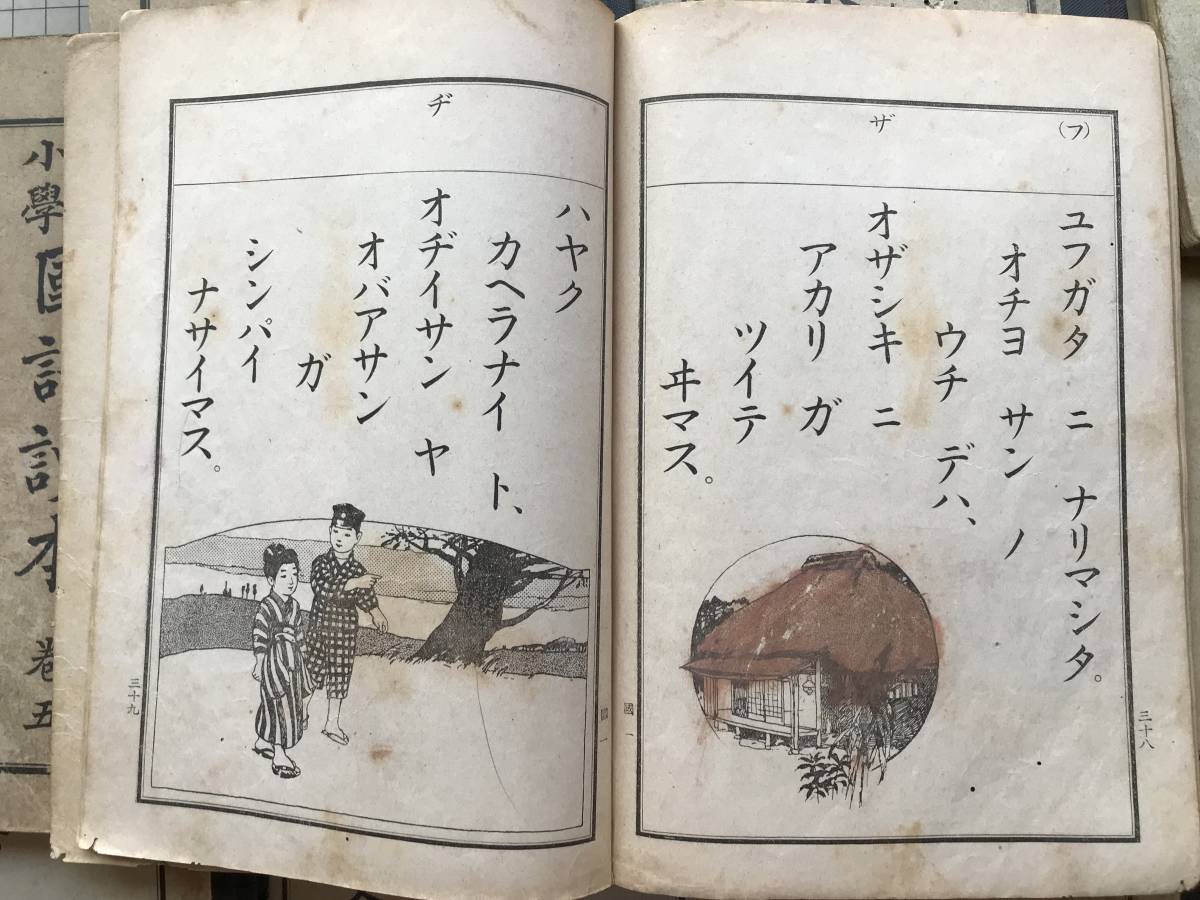 (フ)
ザ
ユフガタ ニ ナリマシタ。
オチヨ サン ノ
ウチ デハ、
オザシキ ニ
アカリ ガ
ツイテ
ヰマス。
三十八
國一
ヂ
ハヤク
カヘラナイ ト、
オヂイサン ヤ
オバアサン
ガ
シンパイ
ナサイマス。
三十九
小學國語讀本 巻五